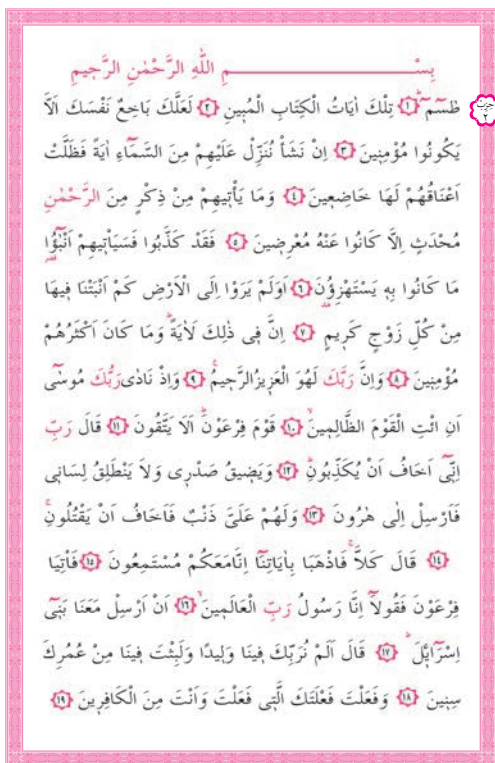 بِسْــــــــــــــــمِ اللّٰهِ الرَّحْمٰنِ الرَّحِيمِ
حزب ٢
طٰسٓمٓ ﴿١﴾ تِلْكَ اٰيَاتُ الْكِتَابِ الْمُبِينِ ﴿٢﴾ لَعَلَّكَ بَاخِعٌ نَفْسَكَ اَلَّا
يَكُونُوا مُؤْمِنِينَ ﴿٣﴾ اِنْ نَشَأْ نُنَزِّلْ عَلَيْهِمْ مِنَ السَّمَٓاءِ اٰيَةً فَظَلَّتْ
اَعْنَاقُهُمْ لَهَا خَاضِعِينَ ﴿٤﴾ وَمَا يَأْتِيهِمْ مِنْ ذِكْرٍ مِنَ الرَّحْمٰنِ
مُحْدَثٍ اِلَّا كَانُوا عَنْهُ مُعْرِضِينَ ﴿٥﴾ فَقَدْ كَذَّبُوا فَسَيَأْتِيهِمْ اَنْبٰٓؤُا
مَا كَانُوا بِهِ يَسْتَهْزِؤُنَ ﴿٦﴾ اَوَلَمْ يَرَوْا اِلَى الْاَرْضِ كَمْ اَنْبَتْنَا فِيهَا
مِنْ كُلِّ زَوْجٍ كَرِيمٍ ﴿٧﴾ اِنَّ فِى ذٰلِكَ لَاٰيَةًۜ وَمَا كَانَ اَكْثَرُهُمْ
مُؤْمِنِينَ ﴿٨﴾ وَاِنَّ رَبَّكَ لَهُوَ الْعَزِيزُ الرَّحِيمُ۟ ﴿٩﴾ وَاِذْ نَادٰى رَبُّكَ مُوسٰٓى
اَنِ ائْتِ الْقَوْمَ الظَّالِمِينَۙ ﴿١٠﴾ قَوْمَ فِرْعَوْنَۜ اَلَا يَتَّقُونَ ﴿١١﴾ قَالَ رَبِّ
اِنِّٓى اَخَافُ اَنْ يُكَذِّبُونِۜ ﴿١٢﴾ وَيَضِيقُ صَدْرِى وَلَا يَنْطَلِقُ لِسَانِى
فَاَرْسِلْ اِلٰى هٰرُونَ ﴿١٣﴾ وَلَهُمْ عَلَىَّ ذَنْبٌ فَاَخَافُ اَنْ يَقْتُلُونِۚ
﴿١٤﴾ قَالَ كَلَّاۚ فَاذْهَبَا بِاٰيَاتِنَٓا اِنَّا مَعَكُمْ مُسْتَمِعُونَ ﴿١٥﴾ فَأْتِيَا
فِرْعَوْنَ فَقُولَٓا اِنَّا رَسُولُ رَبِّ الْعَالَمِينَۙ ﴿١٦﴾ اَنْ اَرْسِلْ مَعَنَا بَنِٓى
اِسْرَٓائِلَۜ ﴿١٧﴾ قَالَ اَلَمْ نُرَبِّكَ فِينَا وَلِيدًا وَلَبِثْتَ فِينَا مِنْ عُمُرِكَ
سِنِينَ ﴿١٨﴾ وَفَعَلْتَ فَعْلَتَكَ الَّتِى فَعَلْتَ وَاَنْتَ مِنَ الْكَافِرِينَ ﴿١٩﴾